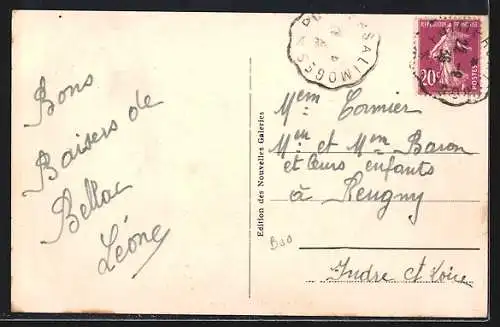 Bons
Baisers de
Bellac
Léone
Edition des Nouvelles Galeries
SALIMOGES
REPUBLIQUE FRANÇAISE
20c
POSTES
Mem Cormier
Mm et Mem Baron
et leurs enfants
à Reugny
Indre et Loire